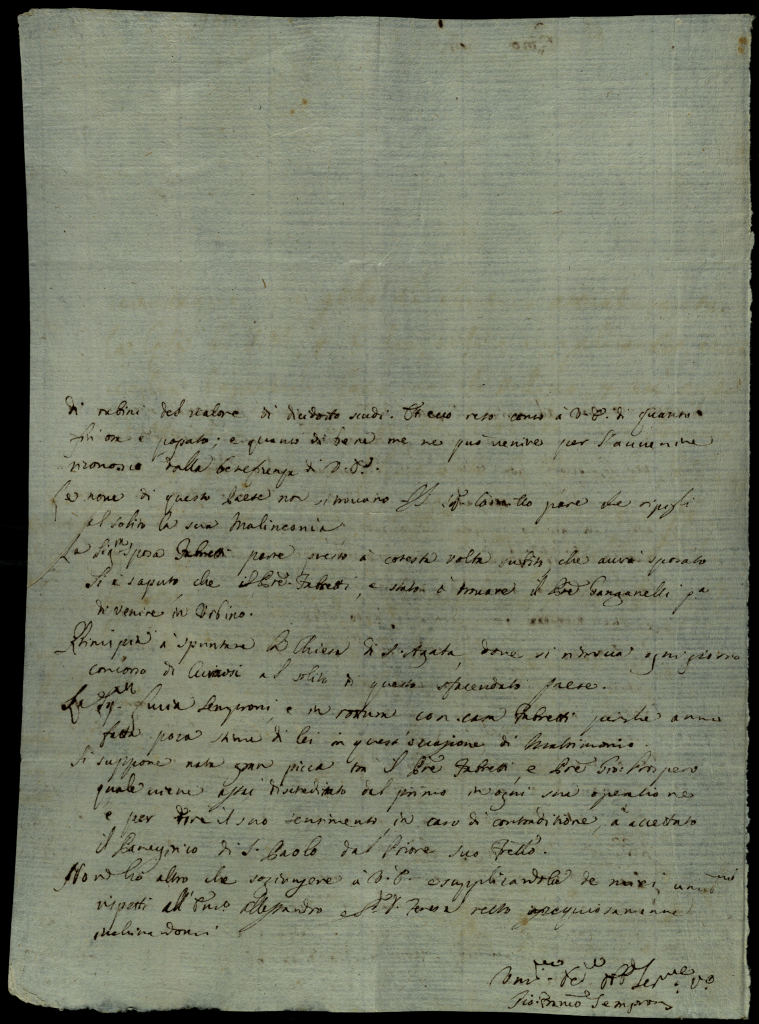 di rubini del valore di diciotto scudi. Et ecco reso conto à V.P. di quanto
fin ora è passato; e quanto di bene me ne può venire per l'avvenire
riconosco dalla beneficenza di V.P.
Le nove di questo Paese non si trovano Il Sigr. pare che ripigli
al solito la sua Malinconia
La Sigra Sposa Fabretti pare presto à cotesta volta subito che avrà sposato
Si è saputo che il Pre. Fabretti, e stato à trovare il Pre Ganganelli pa
di venire in Urbino.
Principia à spuntare la Chiesa di S. Agata, dove si ogni giorno
concorso di Curiosi al solito di questo sfacendato Paese.
La Sigra Lucia Semproni, e in rottura con casa Fabretti perche anno
fatta poca stima di lei in quest'occasione di Matrimonio.
Si suppone nata gran picca tra il Pre Fabretti, e Pre Gio: Prospero
quale viene assai discreditato dal primo in ogni sua operatione
e per dire il suo sentimento in caso di contraditione, à accettato
il Panegirico di S. Paolo dal Priore suo Frello.
Non hò altro che sogiungere à V.P. e supplicandola de miei
rispetti all' Alessandro e Teresa resto ossequiosamente
inchinandomi
Gio: Franco Semproni